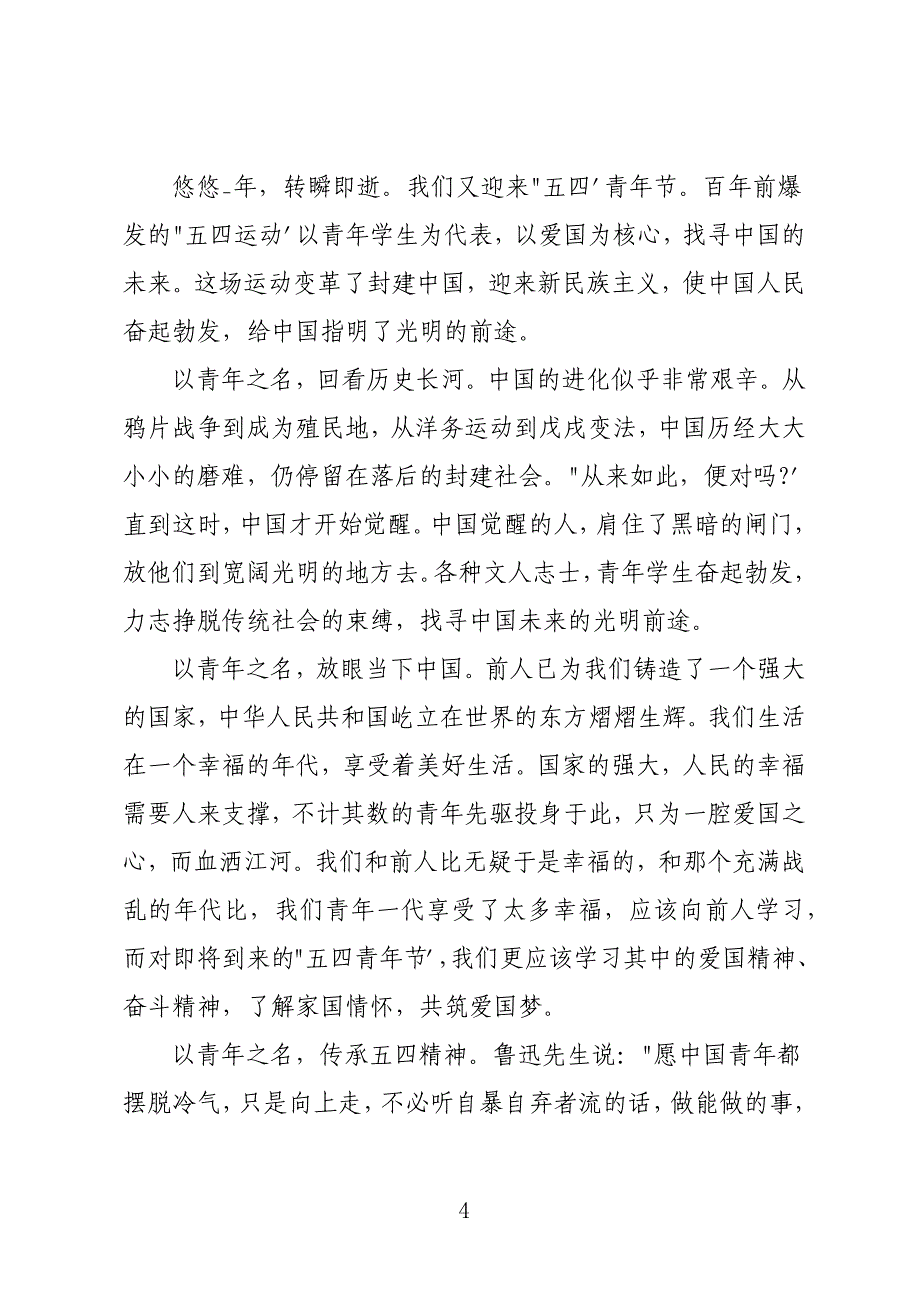 悠悠-年，转瞬即逝。我们又迎来"五四′青年节。百年前爆
发的"五四运动′以青年学生为代表，以爱国为核心，找寻中国的
未来。这场运动变革了封建中国，迎来新民族主义，使中国人民
奋起勃发，给中国指明了光明的前途。
以青年之名，回看历史长河。中国的进化似乎非常艰辛。从
鸦片战争到成为殖民地，从洋务运动到戊戌变法，中国历经大大
小小的磨难，仍停留在落后的封建社会。"从来如此，便对吗?′
直到这时，中国才开始觉醒。中国觉醒的人，肩住了黑暗的闸门，
放他们到宽阔光明的地方去。各种文人志士，青年学生奋起勃发，
力志挣脱传统社会的束缚，找寻中国未来的光明前途。
以青年之名，放眼当下中国。前人已为我们铸造了一个强大
的国家，中华人民共和国屹立在世界的东方熠熠生辉。我们生活
在一个幸福的年代，享受着美好生活。国家的强大，人民的幸福
需要人来支撑，不计其数的青年先驱投身于此，只为一腔爱国之
心，而血洒江河。我们和前人比无疑于是幸福的，和那个充满战
乱的年代比，我们青年一代享受了太多幸福，应该向前人学习，
而对即将到来的"五四青年节′，我们更应该学习其中的爱国精神、
奋斗精神，了解家国情怀，共筑爱国梦。
以青年之名，传承五四精神。鲁迅先生说："愿中国青年都
摆脱冷气，只是向上走，不必听自暴自弃者流的话，做能做的事，
4